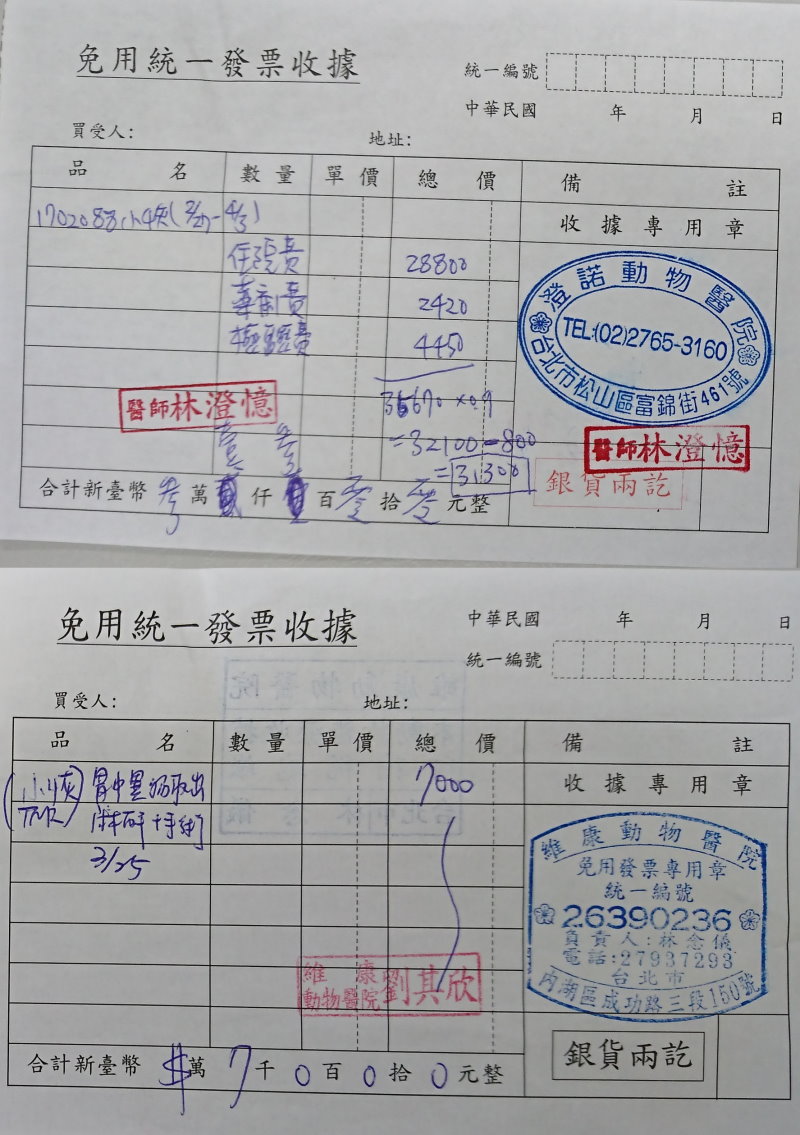 免用統一發票收據
統一編號
中華民國 年 月 日
買受人: 地址:
品名 數量 單價 總價 備註
170208 小灰( - 4/3)
收據專用章
住院費 28800
藥劑費 2420
檢驗費 4450
澄諾動物醫院
TEL:(02)2765-3160
台北市松山區富錦街461號
35670 ×0.9
醫師林澄憶
=32100-800
=31300
醫師林澄憶
銀貨兩訖
壹 參
合計新臺幣 參 萬 仟 百 零 拾 零 元整
免用統一發票收據
中華民國 年 月 日
統一編號
買受人: 地址:
品名 數量 單價 總價 備註
(小灰) 胃中異物取出 7000
收據專用章
麻醉手術
3/25
維康動物醫院
免用發票專用章
統一編號
26390236
負責人:林念儀
電話:27937293
台北市
內湖區成功路三段150號
維康動物醫院 劉其欣
銀貨兩訖
合計新臺幣 $ 萬 7 千 0 百 0 拾 0 元整